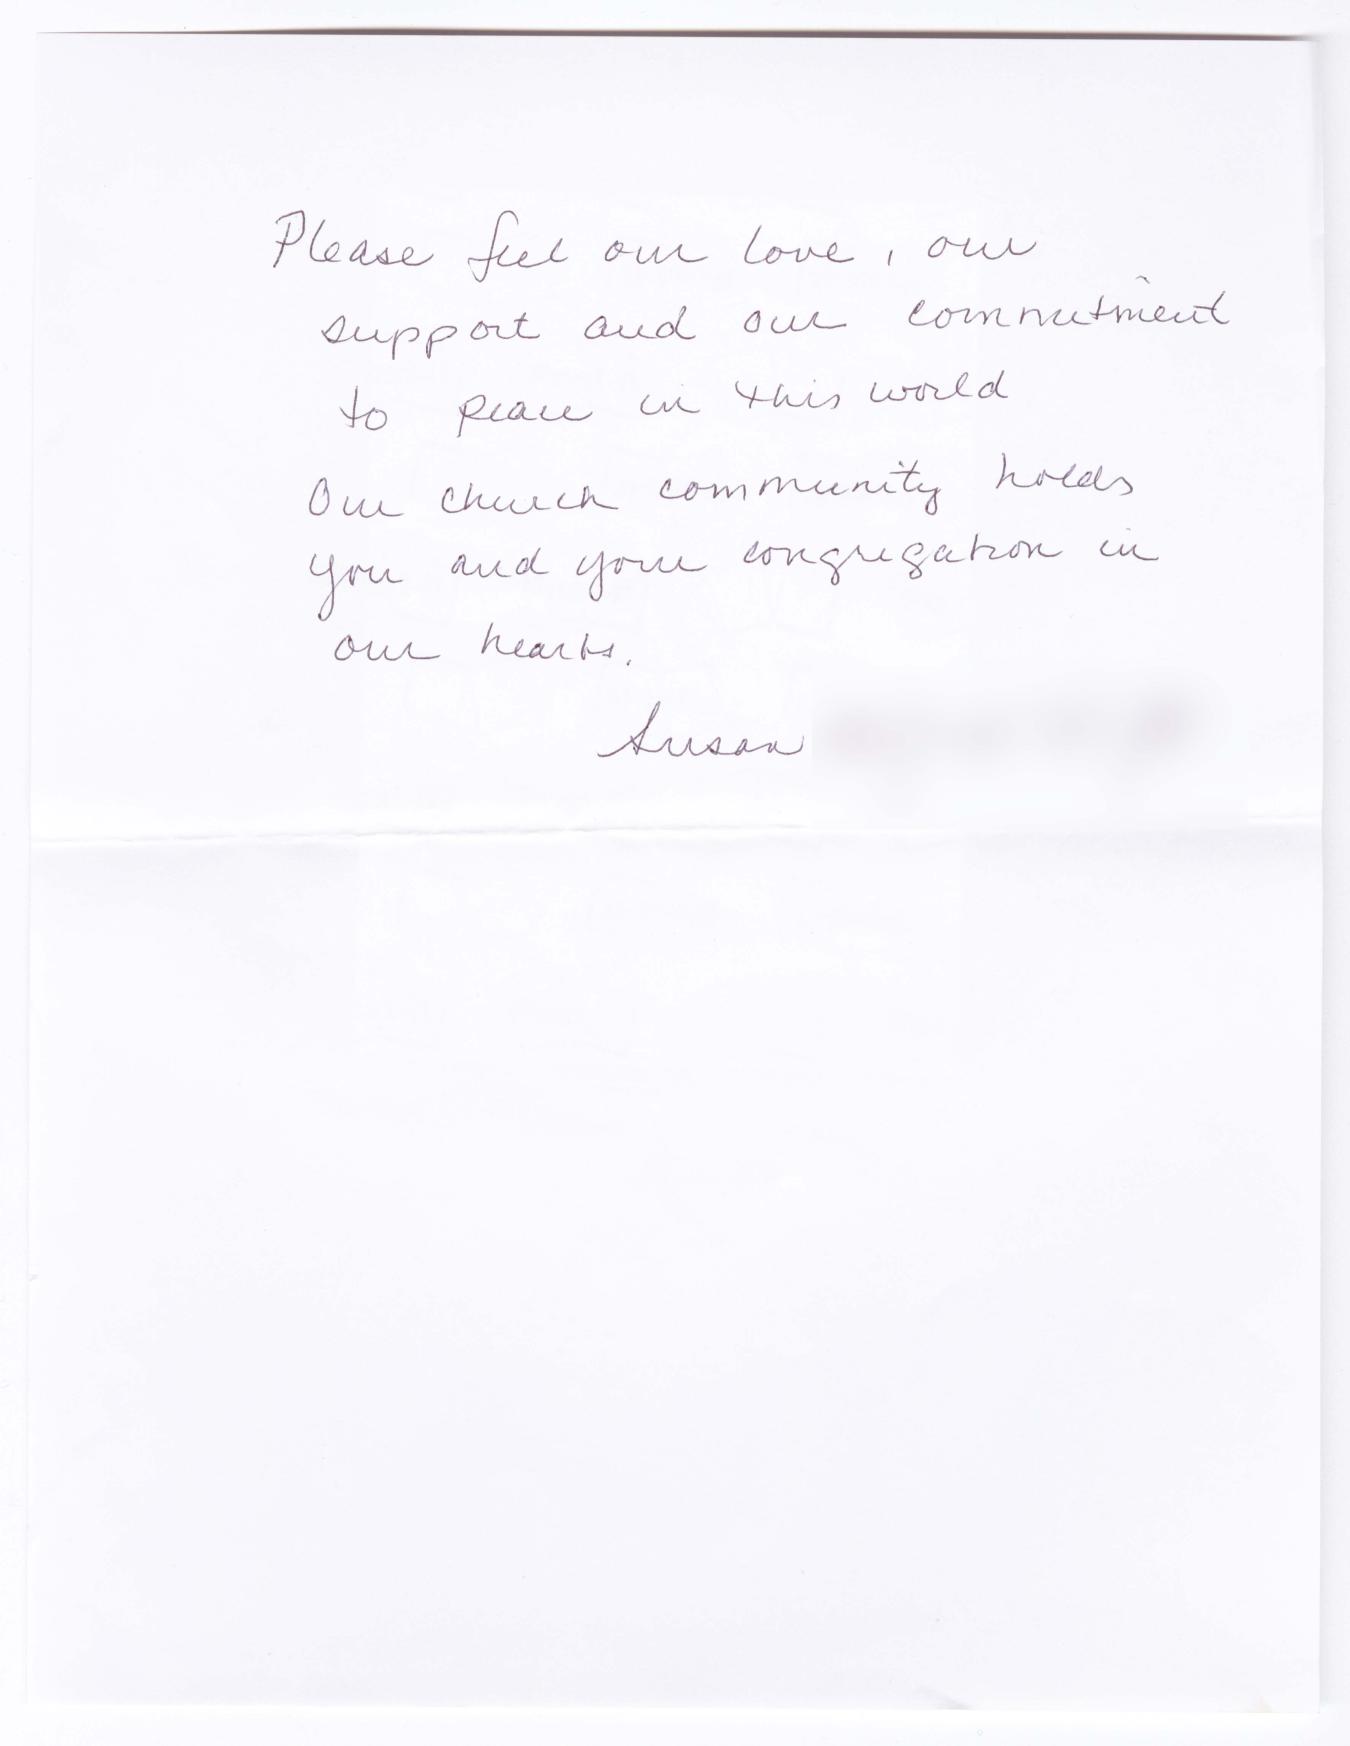 Please feel our love, our
support and our commitment
to peace in this world
Our church community holds
you and your congregation in
our hearts.
Susan